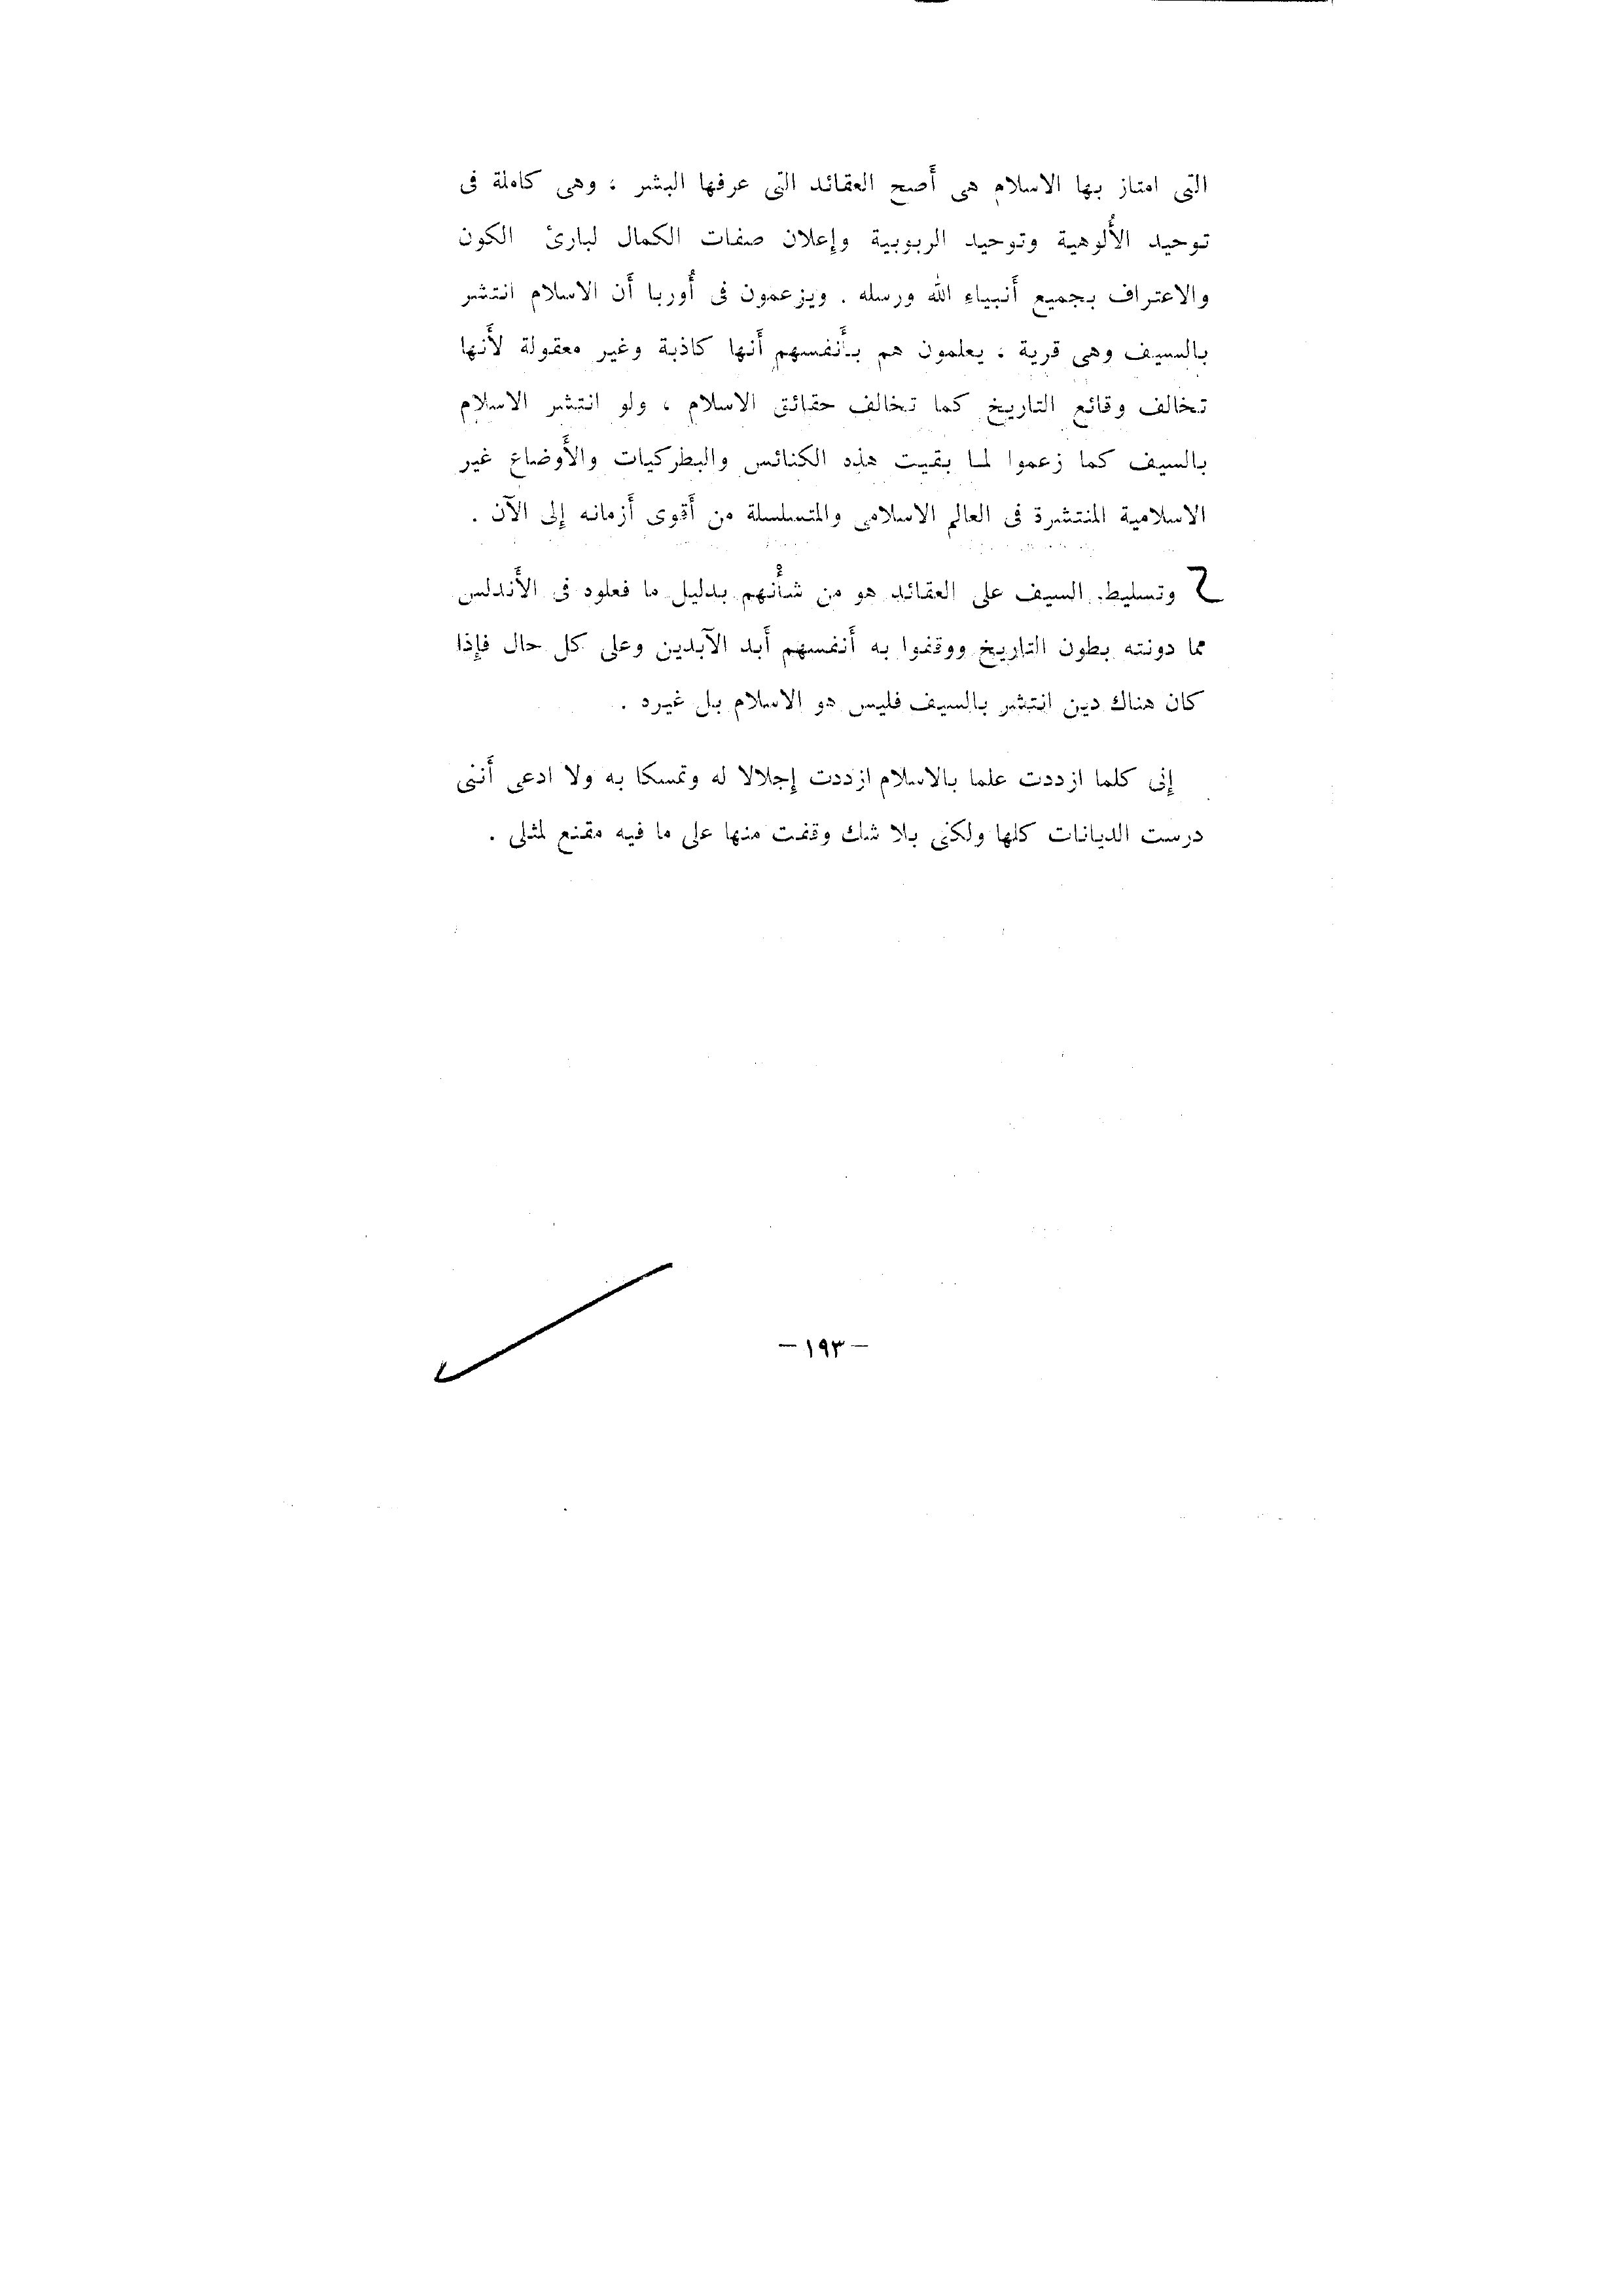 التى امتاز بها الاسلام هى أصح العقائد التى عرفها البشر ؛ وهى كاملة فى
توحيد الأُلوهية وتوحيد الربوبية وإعلان صفات الكمال لبارئ الكون
والاعتراف بجميع أنبياء الله ورسله . ويزعمون فى أُوربا أن الاسلام انتشر
بالسيف وهى قرية ؛ يعلمون هم بأنفسهم أنها كاذبة وغير معقولة لأنها
تخالف وقائع التاريخ كما تخالف حقائق الاسلام ، ولو انتشر الاسلام
بالسيف كما زعموا لما بقيت هذه الكنائس والبطركيات والأوضاع غير
الاسلامية المنتشرة فى العالم الاسلامى والمتسلسلة من أقوى أزمانه إلى الآن .
وتسليط السيف على العقائد هو من شأنهم بدليل ما فعلوه فى الأندلس
مما دونته بطون التاريخ ووقفوا به أنفسهم أبد الآبدين وعلى كل حال فإذا
كان هناك دين انتشر بالسيف فليس هو الاسلام بل غيره .
إنى كلما ازددت علما بالاسلام ازددت إجلالا له وتمسكا به ولا ادعى أننى
درست الديانات كلها ولكنى بلا شك وقفت منها على ما فيه مقنع لمثلى .
— ١٩٣ —